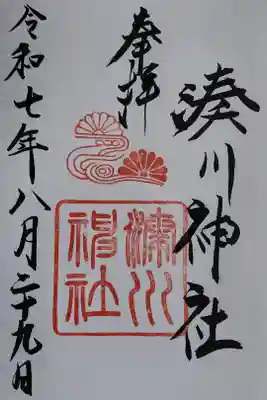 湊川神社
奉拝
湊川神社
令和七年八月二十九日